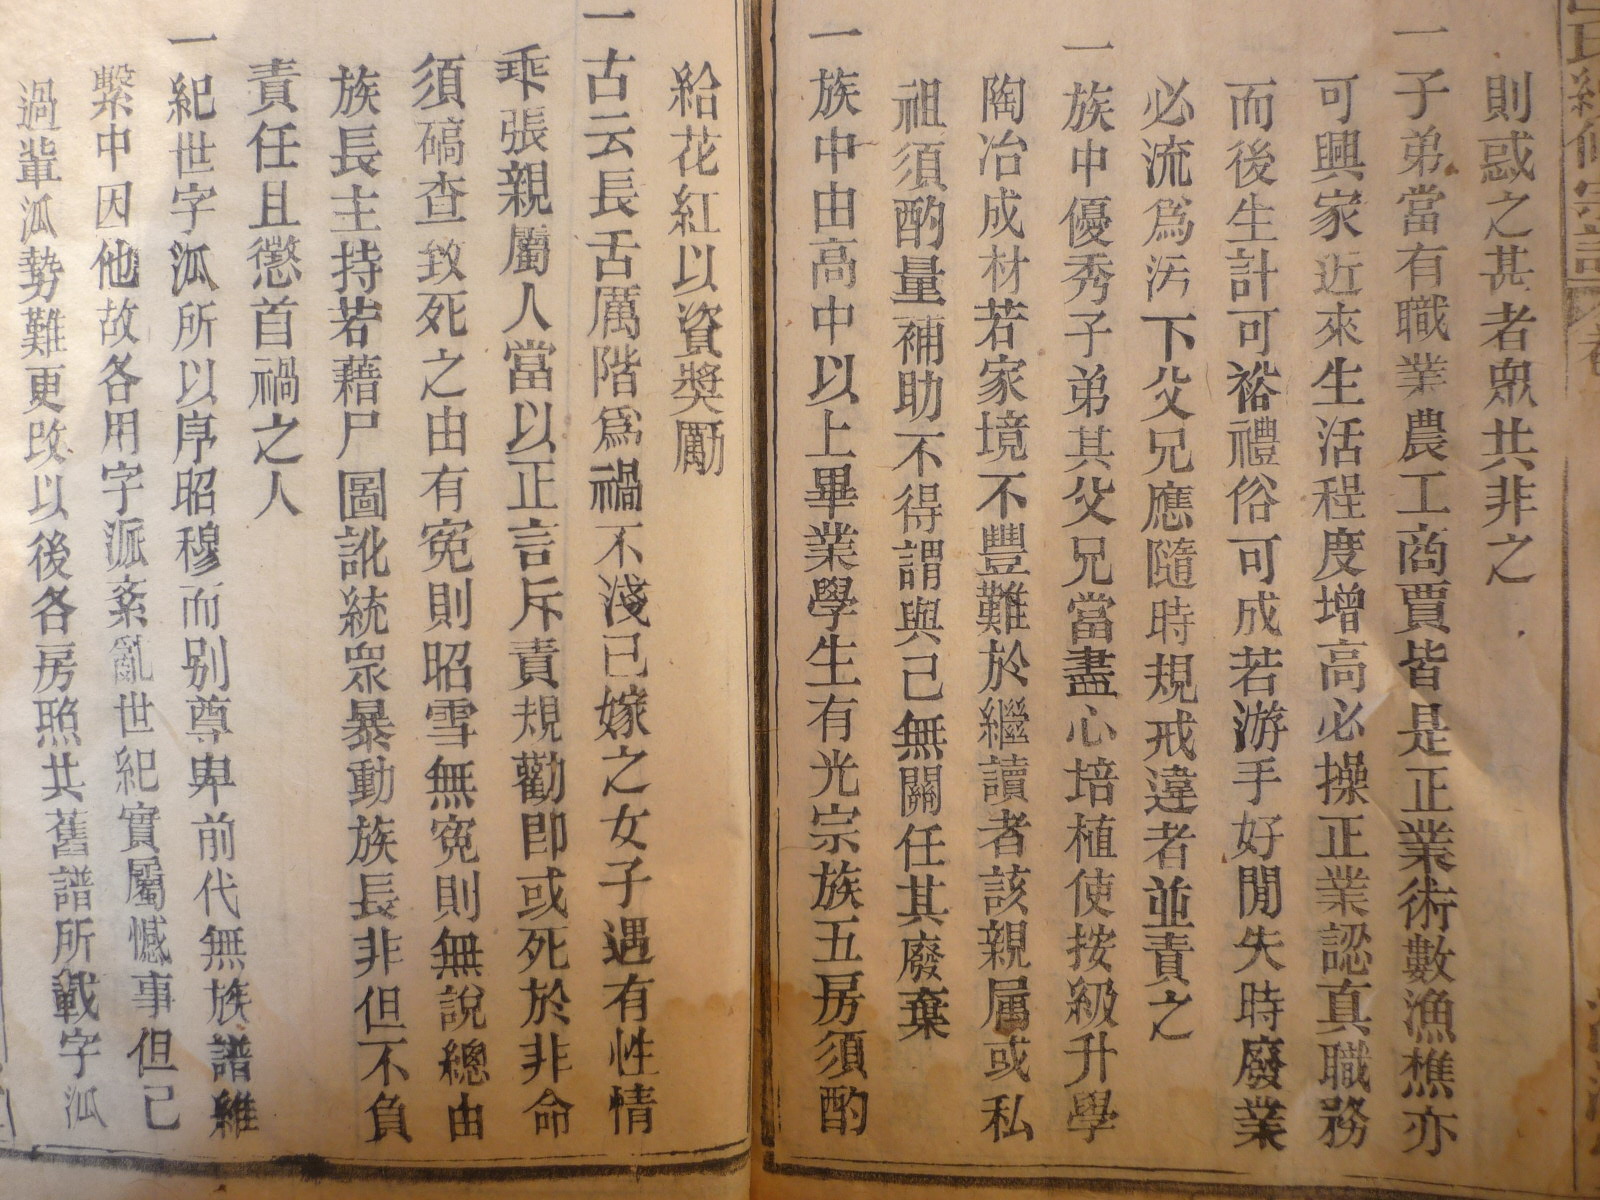 則惑之甚者衆共非之
一子弟當有職業農工商賈皆是正業術數漁樵亦
可興家近來生活程度增高必操正業認真職務
而後生計可裕禮俗可成若游手好閒失時廢業
必流爲汚下父兄應隨時規戒違者並責之
一族中優秀子弟其父兄當盡心培植使按級升學
陶冶成材若家境不豐難於繼讀者該親属或私
祖須酌量補助不得謂與己無關任其廢棄
一族中由高中以上畢業學生有光宗族五房須酌
給花紅以資獎勵
一古云長舌厲階爲禍不淺已嫁之女子遇有性情
乖張親屬人當以正言斥責規勸即或死於非命
須碻查致死之由有寃則昭雪無寃則無說總由
族長主持若藉尸圖訛統衆暴動族長非但不負
責任且懲首禍之人
一紀世字派所以序昭穆而别尊卑前代無族譜維
繫中因他故各用字派紊亂世紀實屬憾事但已
過輩派勢難更改以後各房照共舊譜所載字派